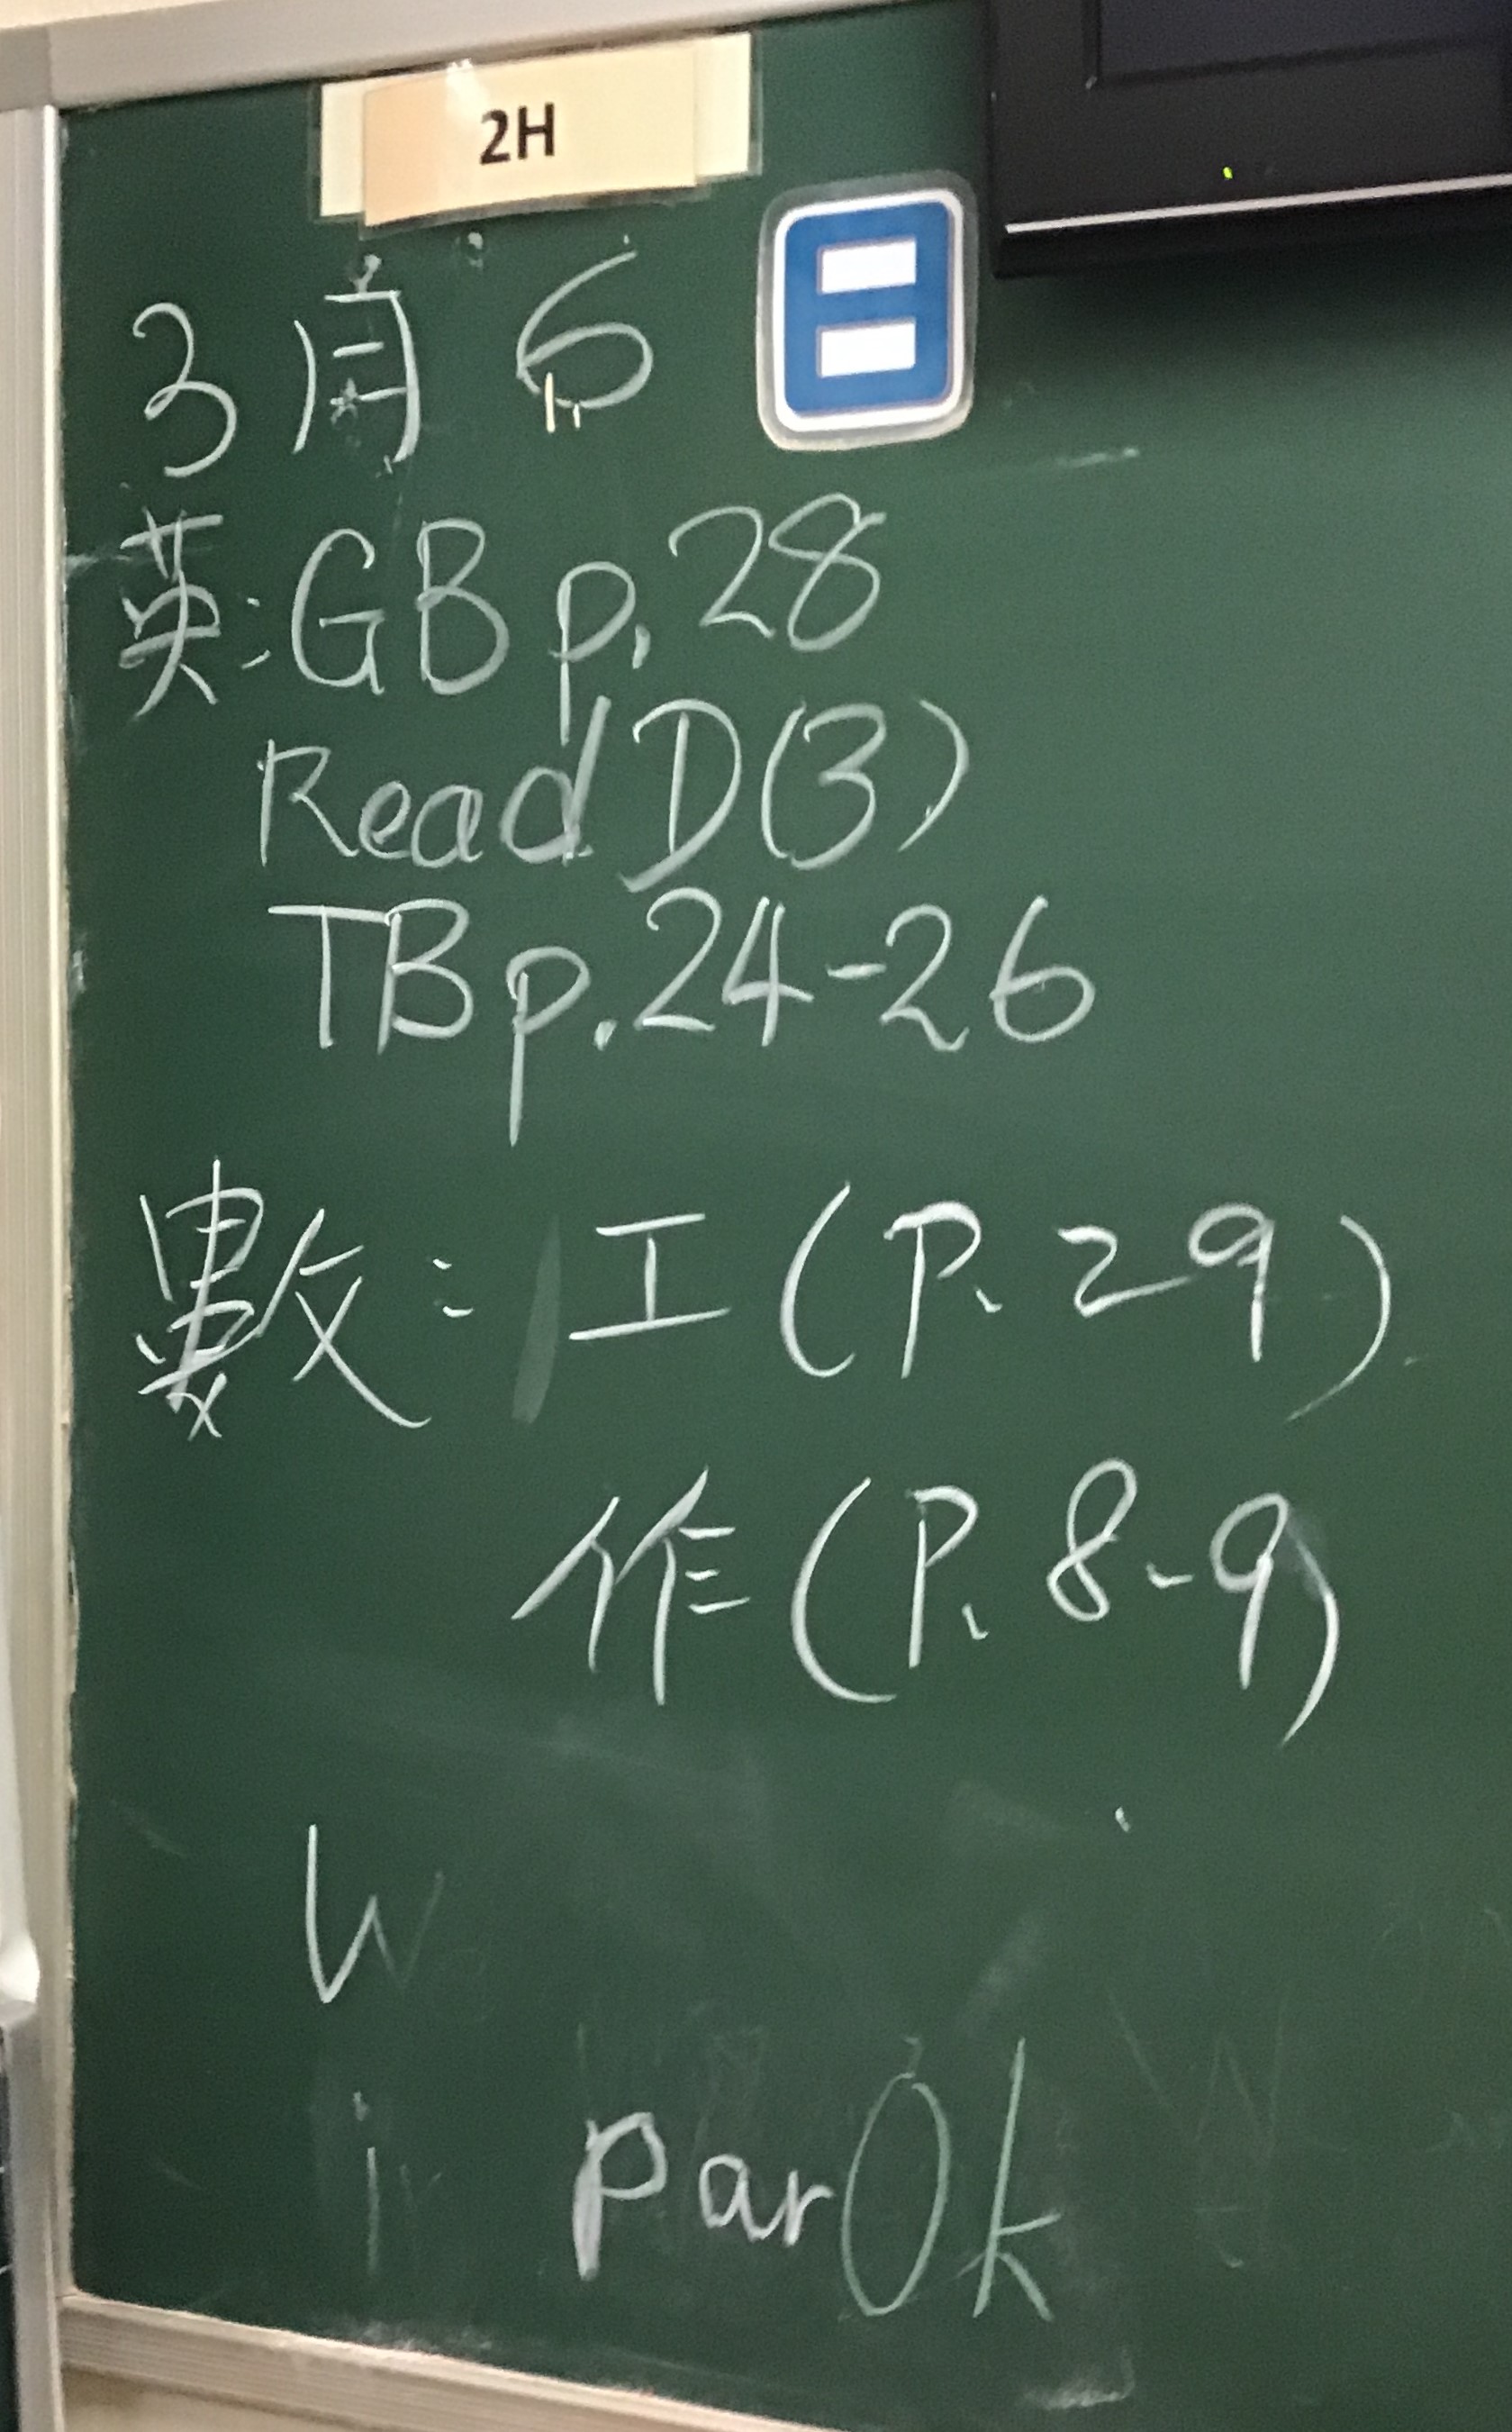 2H
3月6日
英:GB p.28
Read D(3)
TB p.24-26
數:工(P.29)
作(P.8-9)
W
i par Ok